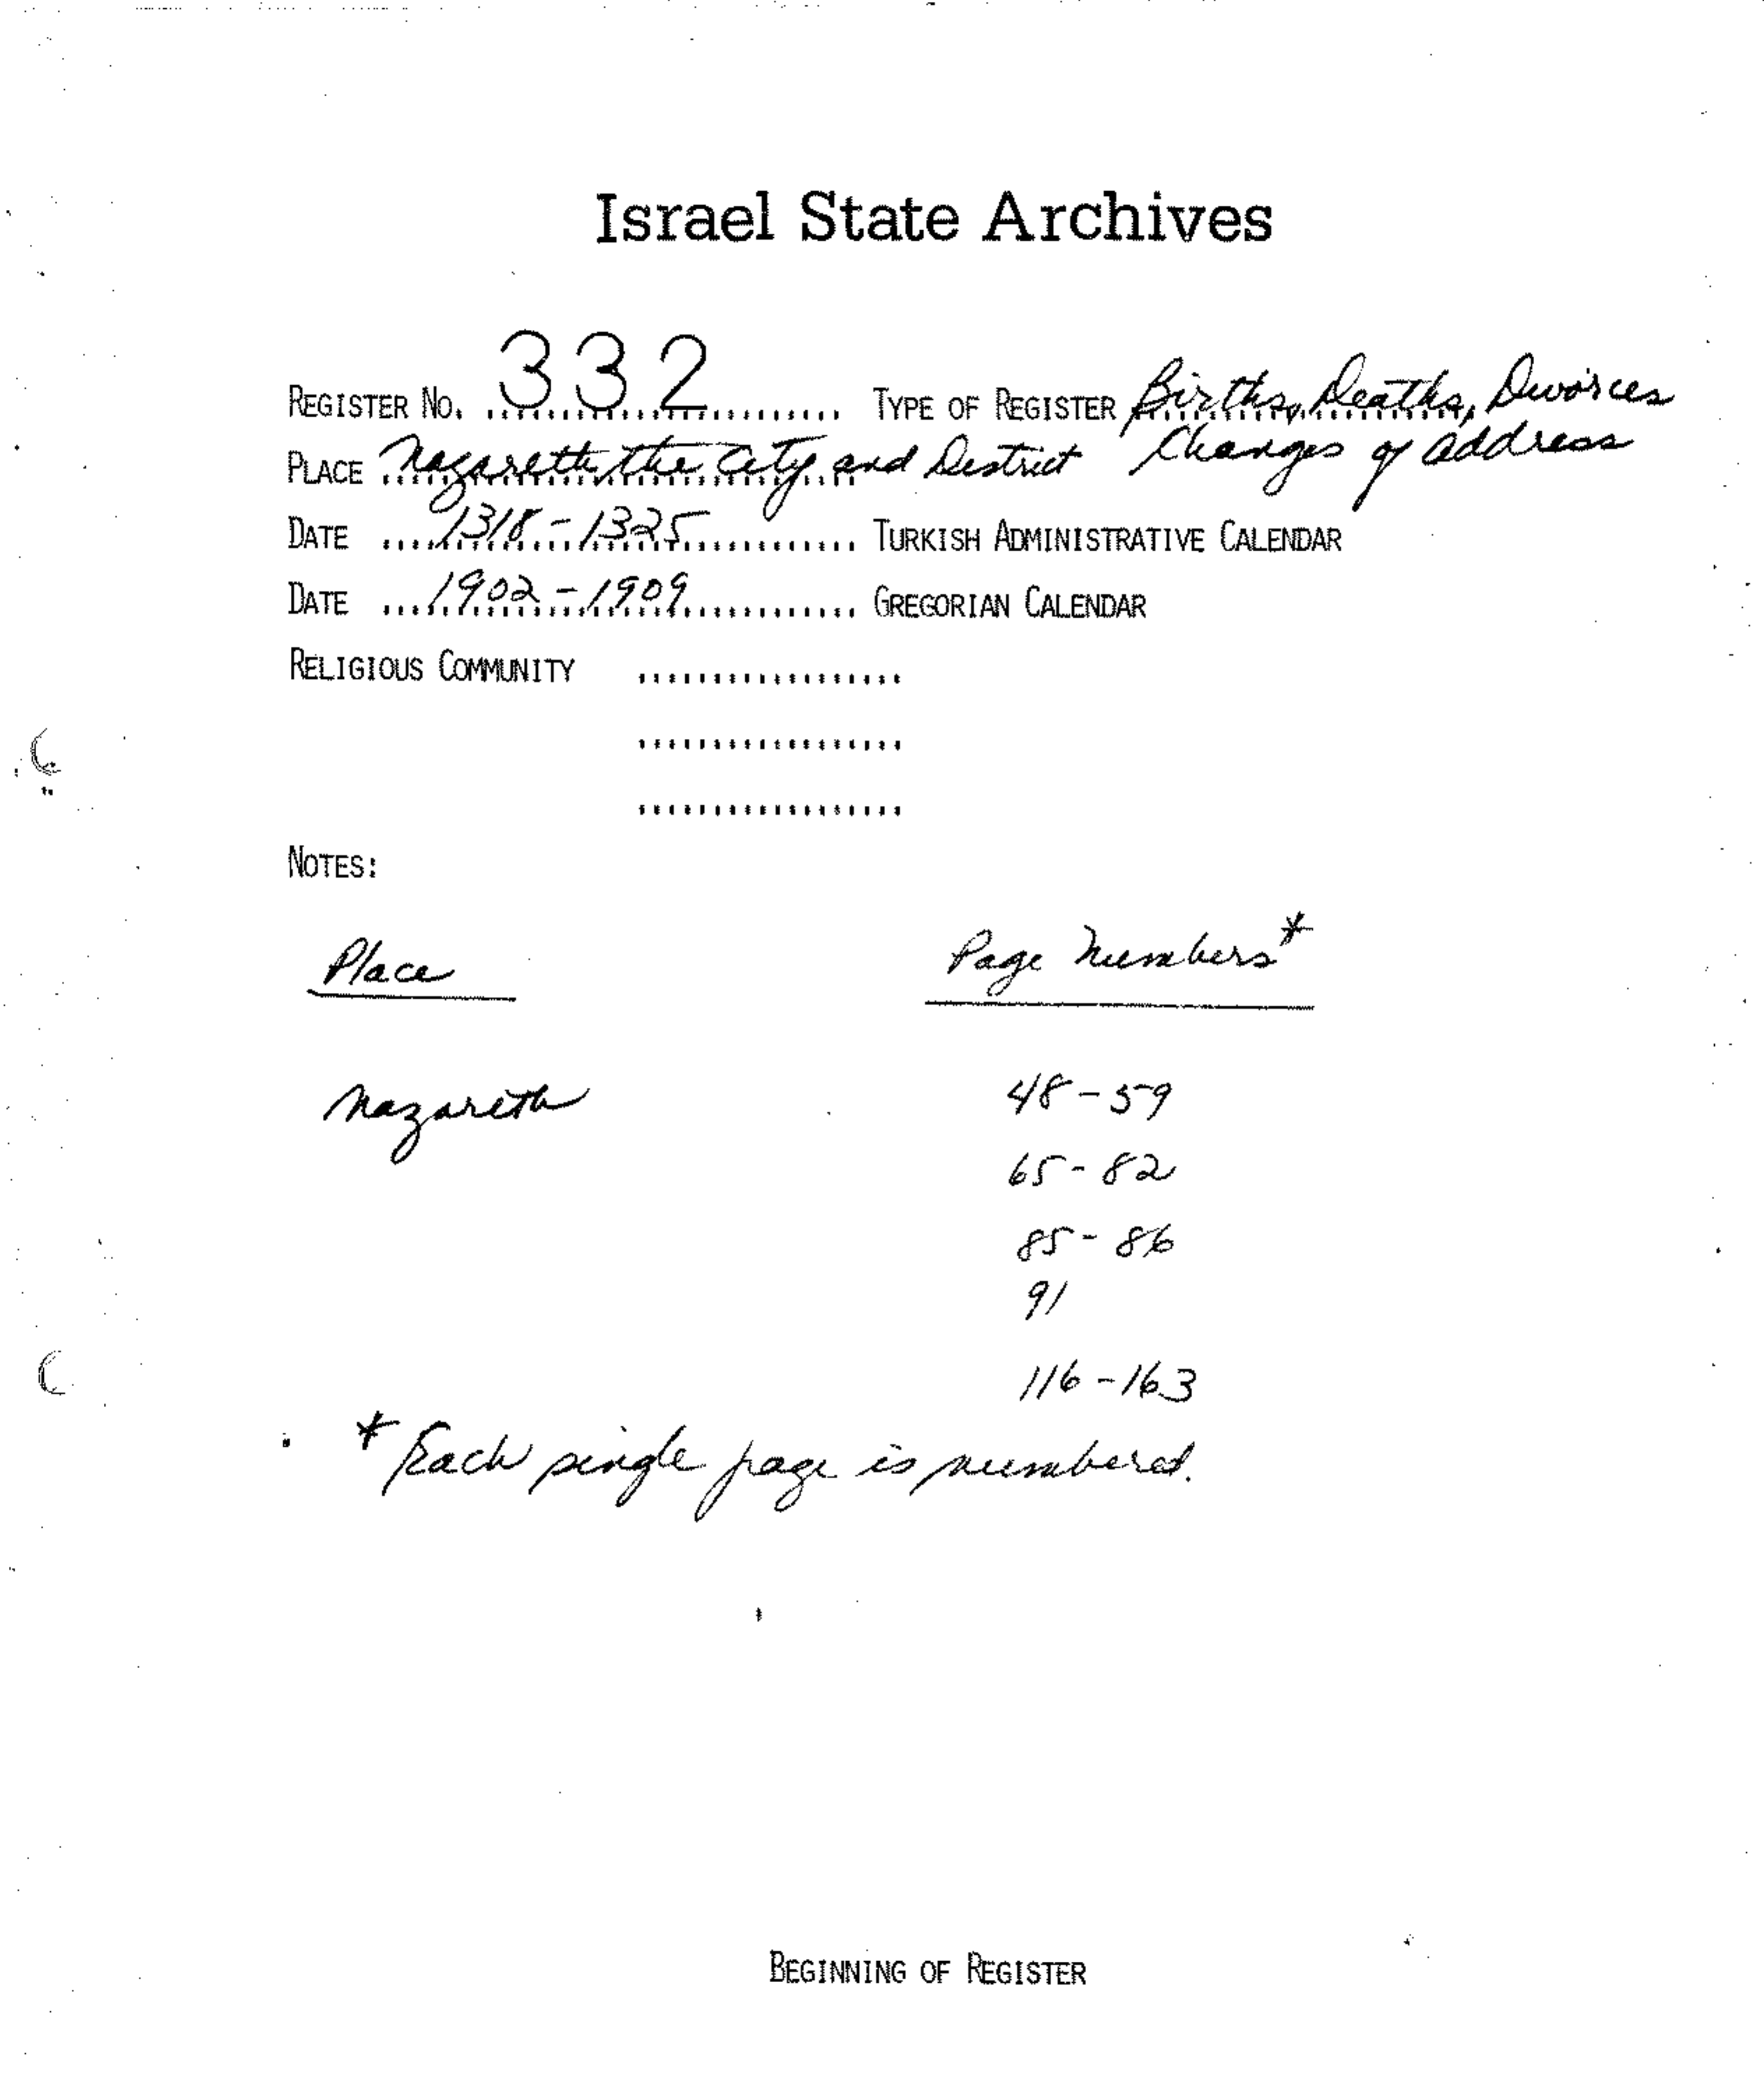 Israel State Archives
REGISTER NO. 332 TYPE OF REGISTER Births, Deaths, Divorces
PLACE Nazareth, the City and District Changes of address
DATE 1318-1325 TURKISH ADMINISTRATIVE CALENDAR
DATE 1902-1909 GREGORIAN CALENDAR
RELIGIOUS COMMUNITY
NOTES:
Place Page Numbers*
Nazareth 48-59
65-82
85-86
91
116-163
* Each single page is numbered.
BEGINNING OF REGISTER